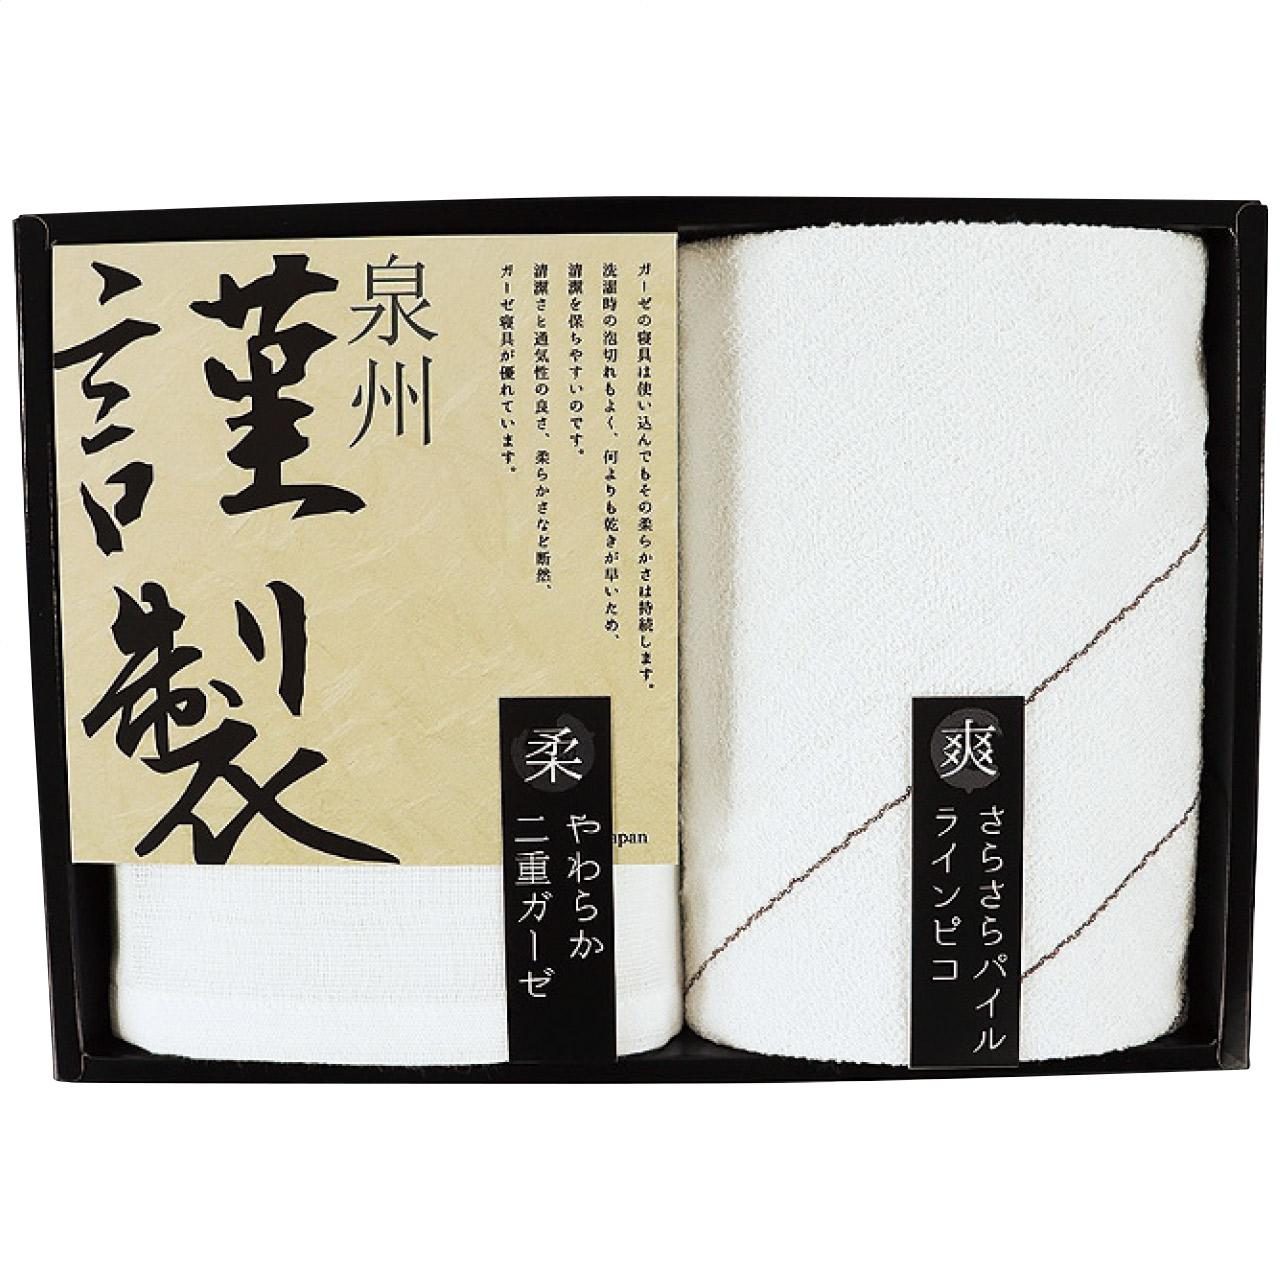 ガーゼの寝具は使い込んでもその柔らかさは持続します。
洗濯時の泡切れもよく、何よりも乾きが早いため、
清潔を保ちやすいのです。
清潔さと通気性の良さ、柔らかさなど断然、
ガーゼ寝具が優れています。
泉州
謹製
柔
やわらか
二重ガーゼ
apan
爽
さらさらパイル
ラインピコ